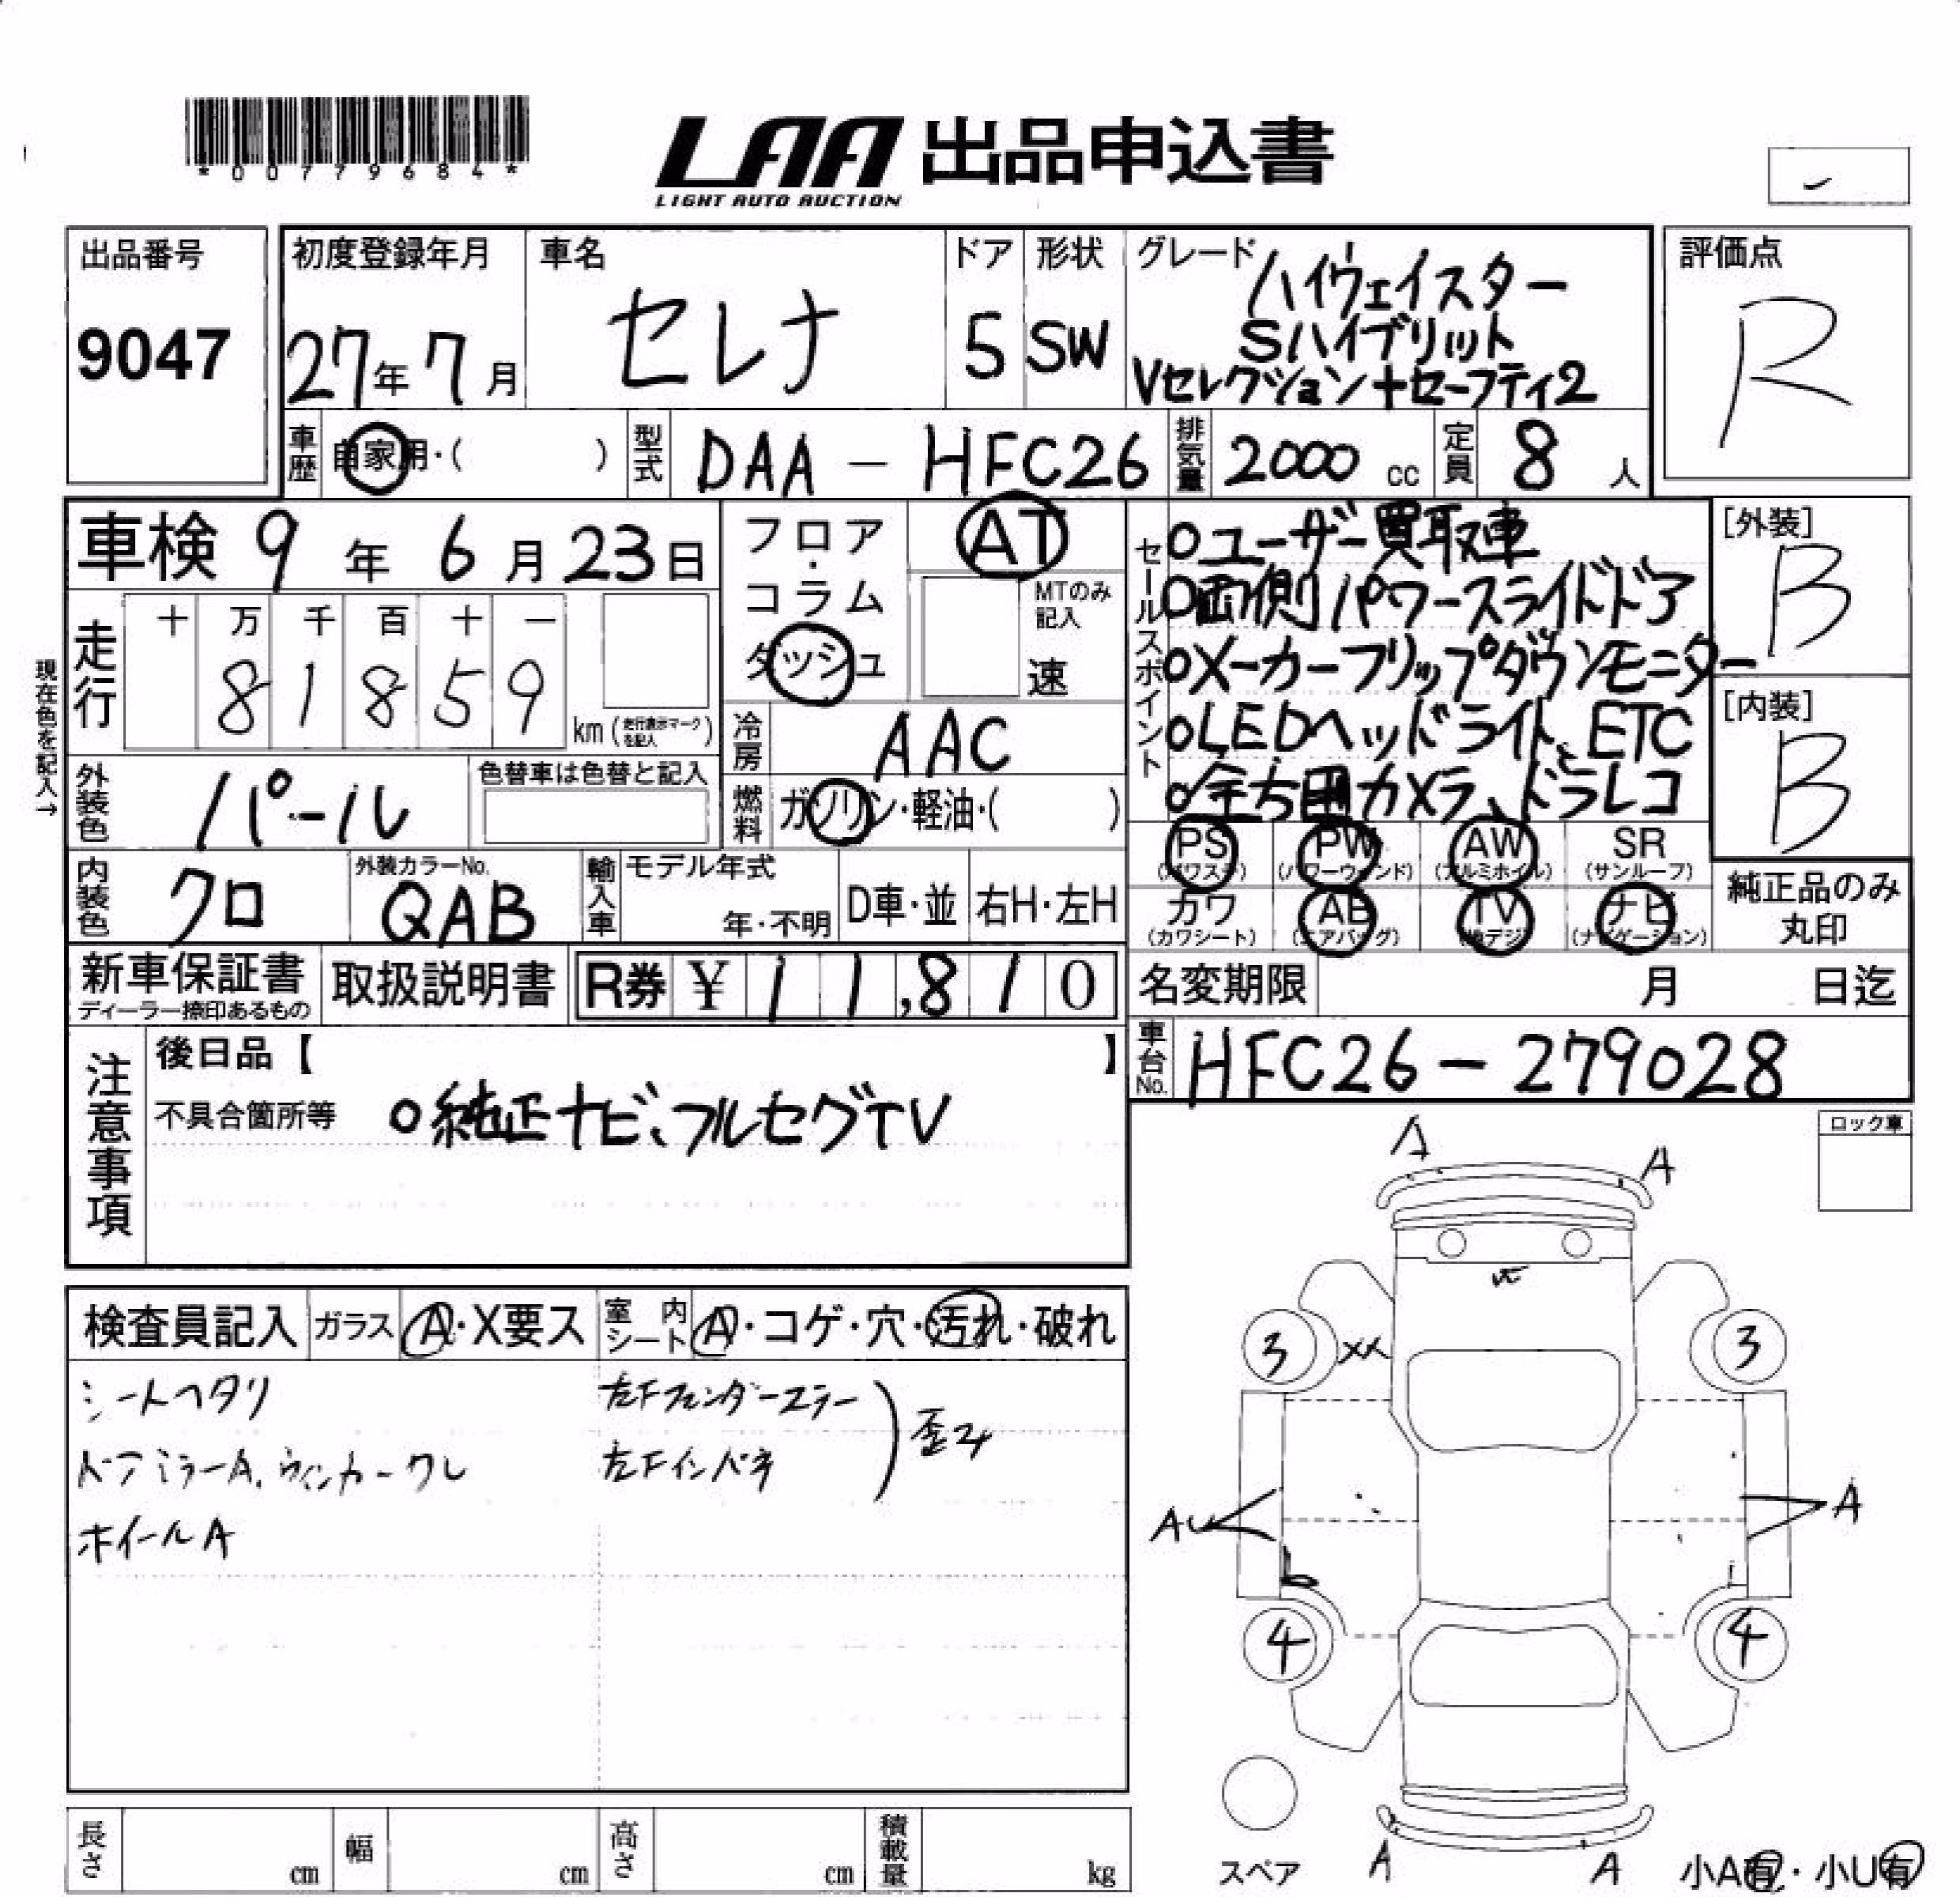 *00779684*
LAA 出品申込書
LIGHT AUTO AUCTION
出品番号
9047
初度登録年月
27年7月
車名
セレナ
ドア
5
形状
SW
グレード
ハイウェイスター
Sハイブリット
Vセレクション+セーフティ2
評価点
R
車歴
自家用・( )
型式
DAA - HFC26
排気量
2000 cc
定員
8 人
車検 9年6月23日
フロア・コラム
ダッシュ
AT
MTのみ記入
速
走行
十 万 千 百 十 一
8 1 8 5 9
km(走行表示マークを記入)
現在色を記入→
冷房
AAC
燃料
ガソリン・軽油・( )
外装色
パール
色替車は色替と記入
内装色
クロ
外装カラーNo.
QAB
輸入車
モデル年式
年・不明
D車・並
右H・左H
セールスポイント
○ユーザー買取車
○両側パワースライドドア
○メーカーフリップダウンモニター
○LEDヘッドライト、ETC
○全方囲カメラ、ドラレコ
[外装]
B
[内装]
B
PS PW AW SR
(パワステ) (パワーウィンド) (アルミホイル) (サンルーフ)
カワ AB TV ナビ
(カワシート) (エアバッグ) (地デジ) (ナビゲーション)
純正品のみ
丸印
新車保証書
ディーラー捺印あるもの
取扱説明書
R券 ¥ 11,810
名変期限 月 日迄
車台No.
HFC26-279028
注意事項
後日品【 】
不具合箇所等 ○純正ナビ、フルセグTV
ロック車
検査員記入
ガラス A・X要ス
室内シート A・コゲ・穴・汚れ・破れ
シートヘタリ
ドアミラーA、ウィンカーワレ
ホイールA
左Fフェンダーステー
左Fインパネ
歪み
A
A
3
XX
3
AU
A
4
4
スペア
A
A
小A有・小U有
長さ cm
幅 cm
高さ cm
積載量 kg